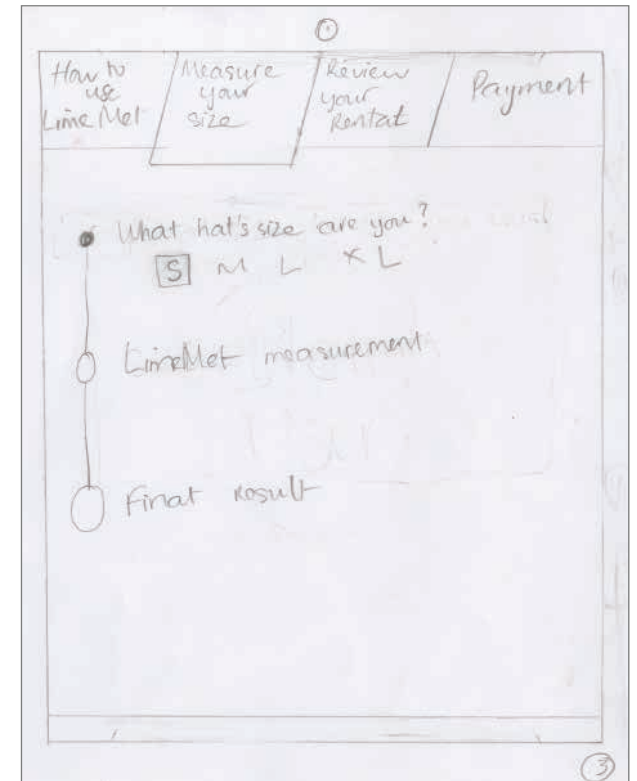 How to
use
LimeMet
Measure
your
size
Review
your
Rental
Payment
What hat's size are you?
S M L XL
LimeMet measurement
Final Result
3